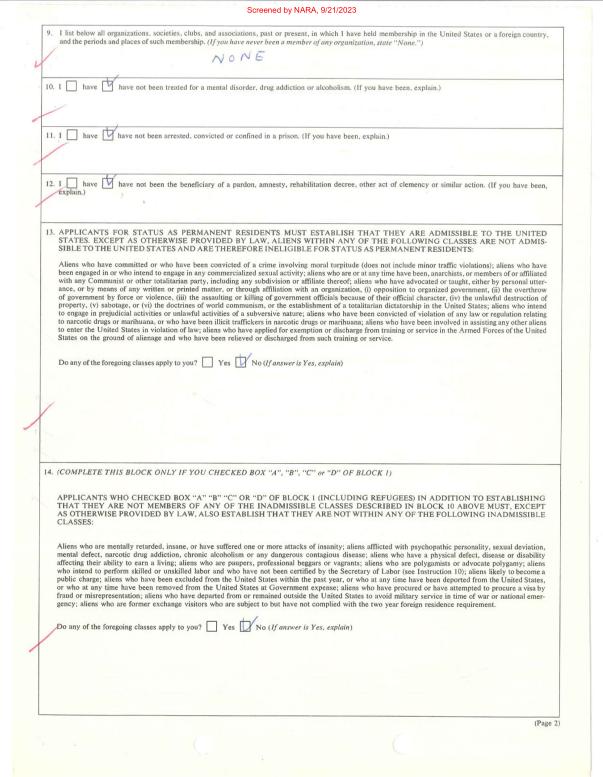 Screened by NARA, 9/21/2023
9. I list below all organizations, societies, clubs, and associations, past or present, in which I have held membership in the United States or a foreign country,
and the periods and places of such membership. (If you have never been a member of any organization, state "None.")
NONE
10. I have have not been treated for a mental disorder, drug addiction or alcoholism. (If you have been, explain.)
11. I have have not been arrested, convicted or confined in a prison. (If you have been, explain.)
12. I have have not been the beneficiary of a pardon, amnesty, rehabilitation decree, other act of clemency or similar action. (If you have been,
explain.)
13. APPLICANTS FOR STATUS AS PERMANENT RESIDENTS MUST ESTABLISH THAT THEY ARE ADMISSIBLE TO THE UNITED
STATES. EXCEPT AS OTHERWISE PROVIDED BY LAW, ALIENS WITHIN ANY OF THE FOLLOWING CLASSES ARE NOT ADMIS-
SIBLE TO THE UNITED STATES AND ARE THEREFORE INELIGIBLE FOR STATUS AS PERMANENT RESIDENTS:
Aliens who have committed or who have been convicted of a crime involving moral turpitude (does not include minor traffic violations); aliens who have
been engaged in or who intend to engage in any commercialized sexual activity; aliens who are or at any time have been, anarchists, or members of or affiliated
with any Communist or other totalitarian party, including any subdivision or affiliate thereof; aliens who have advocated or taught, either by personal utter-
ance, or by means of any written or printed matter, or through affiliation with an organization, (i) opposition to organized government, (ii) the overthrow
of government by force or violence, (iii) the assaulting or killing of government officials because of their official character, (iv) the unlawful destruction of
property, (v) sabotage, or (vi) the doctrines of world communism, or the establishment of a totalitarian dictatorship in the United States; aliens who intend
to engage in prejudicial activities or unlawful activities of a subversive nature; aliens who have been convicted of violation of any law or regulation relating
to narcotic drugs or marihuana, or who have been illicit traffickers in narcotic drugs or marihuana; aliens who have been involved in assisting any other aliens
to enter the United States in violation of law; aliens who have applied for exemption or discharge from training or service in the Armed Forces of the United
States on the ground of alienage and who have been relieved or discharged from such training or service.
Do any of the foregoing classes apply to you? Yes No (If answer is Yes, explain)
14. (COMPLETE THIS BLOCK ONLY IF YOU CHECKED BOX "A", "B", "C" or "D" OF BLOCK 1)
APPLICANTS WHO CHECKED BOX "A" "B" "C" OR "D" OF BLOCK 1 (INCLUDING REFUGEES) IN ADDITION TO ESTABLISHING
THAT THEY ARE NOT MEMBERS OF ANY OF THE INADMISSIBLE CLASSES DESCRIBED IN BLOCK 10 ABOVE MUST, EXCEPT
AS OTHERWISE PROVIDED BY LAW, ALSO ESTABLISH THAT THEY ARE NOT WITHIN ANY OF THE FOLLOWING INADMISSIBLE
CLASSES:
Aliens who are mentally retarded, insane, or have suffered one or more attacks of insanity; aliens afflicted with psychopathic personality, sexual deviation,
mental defect, narcotic drug addiction, chronic alcoholism or any dangerous contagious disease; aliens who have a physical defect, disease or disability
affecting their ability to earn a living; aliens who are paupers, professional beggars or vagrants; aliens who are polygamists or advocate polygamy; aliens
who intend to perform skilled or unskilled labor and who have not been certified by the Secretary of Labor (see Instruction 10); aliens likely to become a
public charge; aliens who have been excluded from the United States within the past year, or who at any time have been deported from the United States,
or who at any time have been removed from the United States at Government expense; aliens who have procured or have attempted to procure a visa by
fraud or misrepresentation; aliens who have departed from or remained outside the United States to avoid military service in time of war or national emer-
gency; aliens who are former exchange visitors who are subject to but have not complied with the two year foreign residence requirement.
Do any of the foregoing classes apply to you? Yes No (If answer is Yes, explain)
(Page 2)